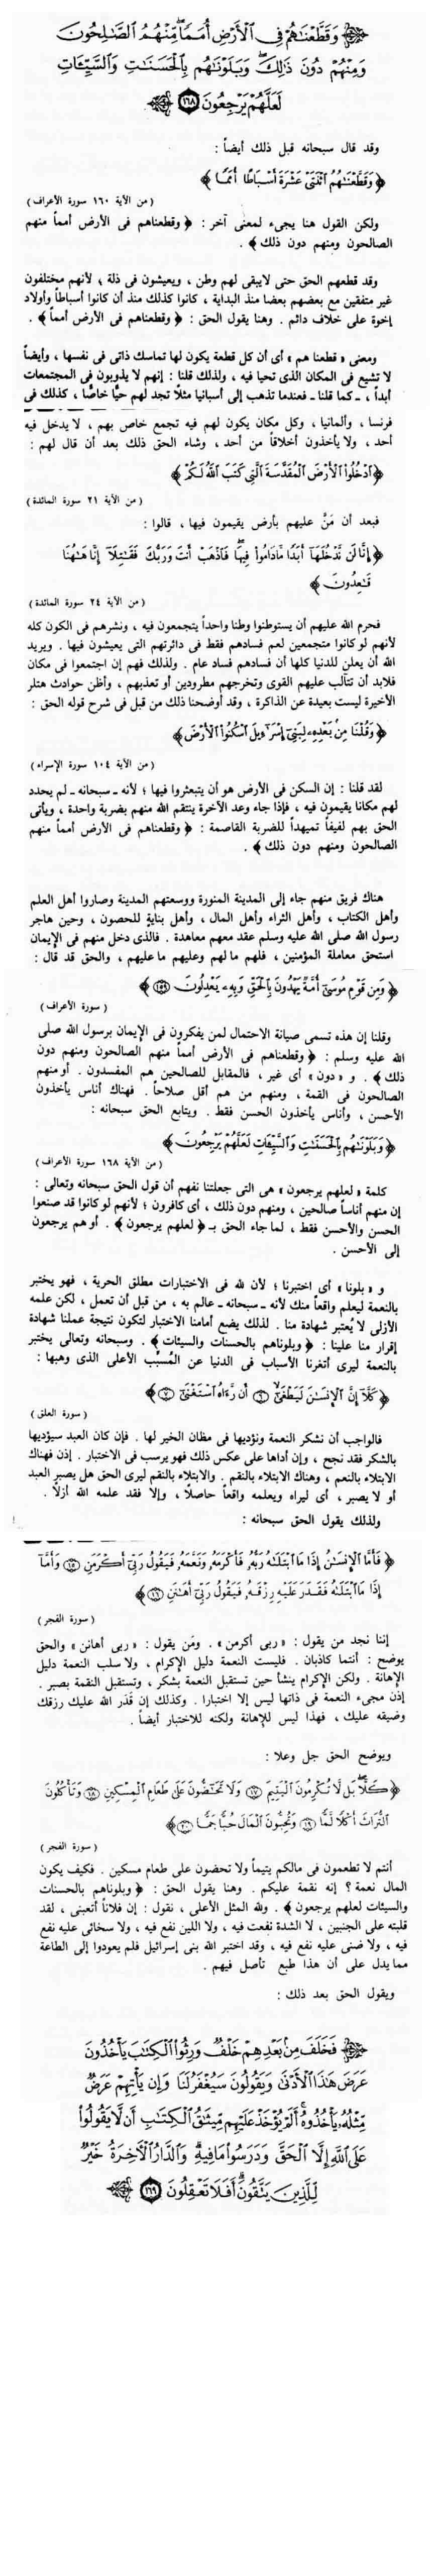 وَقَطَّعْنَاهُمْ فِى ٱلْأَرْضِ أُمَمًا مِّنْهُمُ ٱلصَّالِحُونَ
وَمِنْهُمْ دُونَ ذَٰلِكَ وَبَلَوْنَاهُم بِٱلْحَسَنَاتِ وَٱلسَّيِّئَاتِ
لَعَلَّهُمْ يَرْجِعُونَ ١٦٨
وقد قال سبحانه قبل ذلك أيضاً :
﴿ وَقَطَّعْنَاهُمُ ٱثْنَتَىْ عَشْرَةَ أَسْبَاطًا أُمَمًا ﴾
( من الآية ١٦٠ سورة الأعراف )
ولكن القول هنا يجىء لمعنى آخر : ﴿ وقطعناهم فى الأرض أمماً منهم
الصالحون ومنهم دون ذلك ﴾ .
وقد قطعهم الحق حتى لايبقى لهم وطن ، ويعيشون فى ذلة ؛ لأنهم مختلفون
غير متفقين مع بعضهم بعضا منذ البداية ، كانوا كذلك منذ أن كانوا أسباطاً وأولاد
إخوة على خلاف دائم . وهنا يقول الحق : ﴿ وقطعناهم فى الأرض أمماً ﴾ .
ومعنى « قطعنا هم » أى أن كل قطعة يكون لها تماسك ذاتى فى نفسها ، وأيضاً
لا تشيع فى المكان الذى تحيا فيه ، ولذلك قلنا : إنهم لا يذوبون فى المجتمعات
أبداً ، ـ كما قلنا ـ فعندما تذهب إلى أسبانيا مثلاً تجد لهم حيًّا خاصًّا ، كذلك فى
فرنسا ، وألمانيا ، وكل مكان يكون لهم فيه تجمع خاص بهم ، لا يدخل فيه
أحد ، ولا يأخذون أخلاقاً من أحد ، وشاء الحق ذلك بعد أن قال لهم :
﴿ ٱدْخُلُوا۟ ٱلْأَرْضَ ٱلْمُقَدَّسَةَ ٱلَّتِى كَتَبَ ٱللَّهُ لَكُمْ ﴾
( من الآية ٢١ سورة المائدة )
فبعد أن مَنَّ عليهم بأرض يقيمون فيها ، قالوا :
﴿ إِنَّا لَن نَّدْخُلَهَآ أَبَدًا مَّادَامُوا۟ فِيهَا فَٱذْهَبْ أَنتَ وَرَبُّكَ فَقَاتِلَآ إِنَّا هَاهُنَا
قَاعِدُونَ ﴾
( من الآية ٢٤ سورة المائدة )
فحرم الله عليهم أن يستوطنوا وطنا واحداً يتجمعون فيه ، ونشرهم فى الكون كله
لأنهم لو كانوا متجمعين لعم فسادهم فقط فى دائرتهم التى يعيشون فيها . ويريد
الله أن يعلن للدنيا كلها أن فسادهم فساد عام . ولذلك فهم إن اجتمعوا فى مكان
فلابد أن تتألب عليهم القوى وتخرجهم مطرودين أو تعذبهم ، وأظن حوادث هتلر
الأخيرة ليست بعيدة عن الذاكرة ، وقد أوضحنا ذلك من قبل فى شرح قوله الحق :
﴿ وَقُلْنَا مِنۢ بَعْدِهِۦ لِبَنِىٓ إِسْرَٰٓءِيلَ ٱسْكُنُوا۟ ٱلْأَرْضَ ﴾
( من الآية ١٠٤ سورة الإسراء )
لقد قلنا : إن السكن فى الأرض هو أن يتبعثروا فيها ؛ لأنه ـ سبحانه ـ لم يحدد
لهم مكانا يقيمون فيه ، فإذا جاء وعد الآخرة ينتقم الله منهم بضربة واحدة ، ويأتى
الحق بهم لفيفاً تمهيداً للضربة القاصمة : ﴿ وقطعناهم فى الأرض أمماً منهم
الصالحون ومنهم دون ذلك ﴾ .
هناك فريق منهم جاء إلى المدينة المنورة ووسعتهم المدينة وصاروا أهل العلم
وأهل الكتاب ، وأهل الثراء وأهل المال ، وأهل بنايةٍ للحصون ، وحين هاجر
رسول الله صلى الله عليه وسلم عقد معهم معاهدة . فالذى دخل منهم فى الإيمان
استحق معاملة المؤمنين ، فلهم ما لهم وعليهم ما عليهم ، والحق قد قال :
﴿ وَمِن قَوْمِ مُوسَىٰٓ أُمَّةٌ يَهْدُونَ بِٱلْحَقِّ وَبِهِۦ يَعْدِلُونَ ١٥٩ ﴾
( سورة الأعراف )
وقلنا إن هذه تسمى صيانة الاحتمال لمن يفكرون فى الإيمان برسول الله صلى
الله عليه وسلم : ﴿ وقطعناهم فى الأرض أمماً منهم الصالحون ومنهم دون
ذلك ﴾ . و « دون » أى غير ، فالمقابل للصالحين هم المفسدون . أو منهم
الصالحون فى القمة ، ومنهم من هم أقل صلاحاً . فهناك أناس يأخذون
الأحسن ، وأناس يأخذون الحسن فقط . ويتابع الحق سبحانه :
﴿ وَبَلَوْنَاهُم بِٱلْحَسَنَاتِ وَٱلسَّيِّئَاتِ لَعَلَّهُمْ يَرْجِعُونَ ﴾
( من الآية ١٦٨ سورة الأعراف )
كلمة « لعلهم يرجعون » هى التى جعلتنا نفهم أن قول الحق سبحانه وتعالى :
إن منهم أناساً صالحين ، ومنهم دون ذلك ، أى كافرون ؛ لأنهم لو كانوا قد صنعوا
الحسن والأحسن فقط ، لما جاء الحق بـ ﴿ لعلهم يرجعون ﴾ . أو هم يرجعون
إلى الأحسن .
و « بلونا » أى اختبرنا ؛ لأن لله فى الاختبارات مطلق الحرية ، فهو يختبر
بالنعمة ليعلم واقعاً منك لأنه ـ سبحانه ـ عالم به ، من قبل أن تعمل ، لكن علمه
الأزلى لا يُعتبر شهادة منا . لذلك يضع أمامنا الاختبار لتكون نتيجة عملنا شهادة
إقرار منا علينا : ﴿ وبلوناهم بالحسنات والسيئات ﴾ . وسبحانه وتعالى يختبر
بالنعمة ليرى أتغرنا الأسباب فى الدنيا عن المُسبِّب الأعلى الذى وهبها :
﴿ كَلَّآ إِنَّ ٱلْإِنسَانَ لَيَطْغَىٰٓ ٦ أَن رَّءَاهُ ٱسْتَغْنَىٰٓ ٧ ﴾
( سورة العلق )
فالواجب أن نشكر النعمة ونؤديها فى مظان الخير لها . فإن كان العبد سيؤديها
بالشكر فقد نجح ، وإن أداها على عكس ذلك فهو يرسب فى الاختبار . إذن فهناك
الابتلاء بالنعم ، وهناك الابتلاء بالنقم . والابتلاء بالنقم ليرى الحق هل يصبر العبد
أو لا يصبر ، أى ليراه ويعلمه واقعاً حاصلًا ، وإلا فقد علمه الله أزلًا .
ولذلك يقول الحق سبحانه :
﴿ فَأَمَّا ٱلْإِنسَانُ إِذَا مَا ٱبْتَلَاهُ رَبُّهُۥ فَأَكْرَمَهُۥ وَنَعَّمَهُۥ فَيَقُولُ رَبِّىٓ أَكْرَمَنِ ١٥ وَأَمَّآ
إِذَا مَا ٱبْتَلَاهُ فَقَدَرَ عَلَيْهِ رِزْقَهُۥ فَيَقُولُ رَبِّىٓ أَهَانَنِ ١٦ ﴾
( سورة الفجر )
إننا نجد من يقول : « ربى أكرمن » . ومَن يقول : « ربى أهانن » والحق
يوضح : أنتما كاذبان . فليست النعمة دليل الإكرام ، ولا سلب النعمة دليل
الإهانة . ولكن الإكرام ينشأ حين تستقبل النعمة بشكر ، وتستقبل النقمة بصبر .
إذن مجىء النعمة فى ذاتها ليس إلا اختبارا . وكذلك إن قَدَر الله عليك رزقك
وضيقه عليك ، فهذا ليس للإهانة ولكنه للاختبار أيضاً .
ويوضح الحق جل وعلا :
﴿ كَلَّا بَل لَّا تُكْرِمُونَ ٱلْيَتِيمَ ١٧ وَلَا تَحَٰٓضُّونَ عَلَىٰ طَعَامِ ٱلْمِسْكِينِ ١٨ وَتَأْكُلُونَ
ٱلتُّرَاثَ أَكْلًا لَّمًّا ١٩ وَتُحِبُّونَ ٱلْمَالَ حُبًّا جَمًّا ٢٠ ﴾
( سورة الفجر )
أنتم لا تطعمون فى مالكم يتيماً ولا تحضون على طعام مسكين . فكيف يكون
المال نعمة ؟ إنه نقمة عليكم . وهنا يقول الحق : ﴿ وبلوناهم بالحسنات
والسيئات لعلهم يرجعون ﴾ . ولله المثل الأعلى ، نقول : إن فلاناً أتعبنى ، لقد
قلبته على الجنبين ، لا الشدة نفعت فيه ، ولا اللين نفع فيه ، ولا سخائى عليه نفع
فيه ، ولا ضنى عليه نفع فيه ، وقد اختبر الله بنى إسرائيل فلم يعودوا إلى الطاعة
مما يدل على أن هذا طبع تأصل فيهم .
ويقول الحق بعد ذلك :
فَخَلَفَ مِنۢ بَعْدِهِمْ خَلْفٌ وَرِثُوا۟ ٱلْكِتَابَ يَأْخُذُونَ
عَرَضَ هَٰذَا ٱلْأَدْنَىٰ وَيَقُولُونَ سَيُغْفَرُ لَنَا وَإِن يَأْتِهِمْ عَرَضٌ
مِّثْلُهُۥ يَأْخُذُوهُ أَلَمْ يُؤْخَذْ عَلَيْهِم مِّيثَاقُ ٱلْكِتَابِ أَن لَّا يَقُولُوا۟
عَلَى ٱللَّهِ إِلَّا ٱلْحَقَّ وَدَرَسُوا۟ مَا فِيهِ وَٱلدَّارُ ٱلْآخِرَةُ خَيْرٌ
لِّلَّذِينَ يَتَّقُونَ أَفَلَا تَعْقِلُونَ ١٦٩